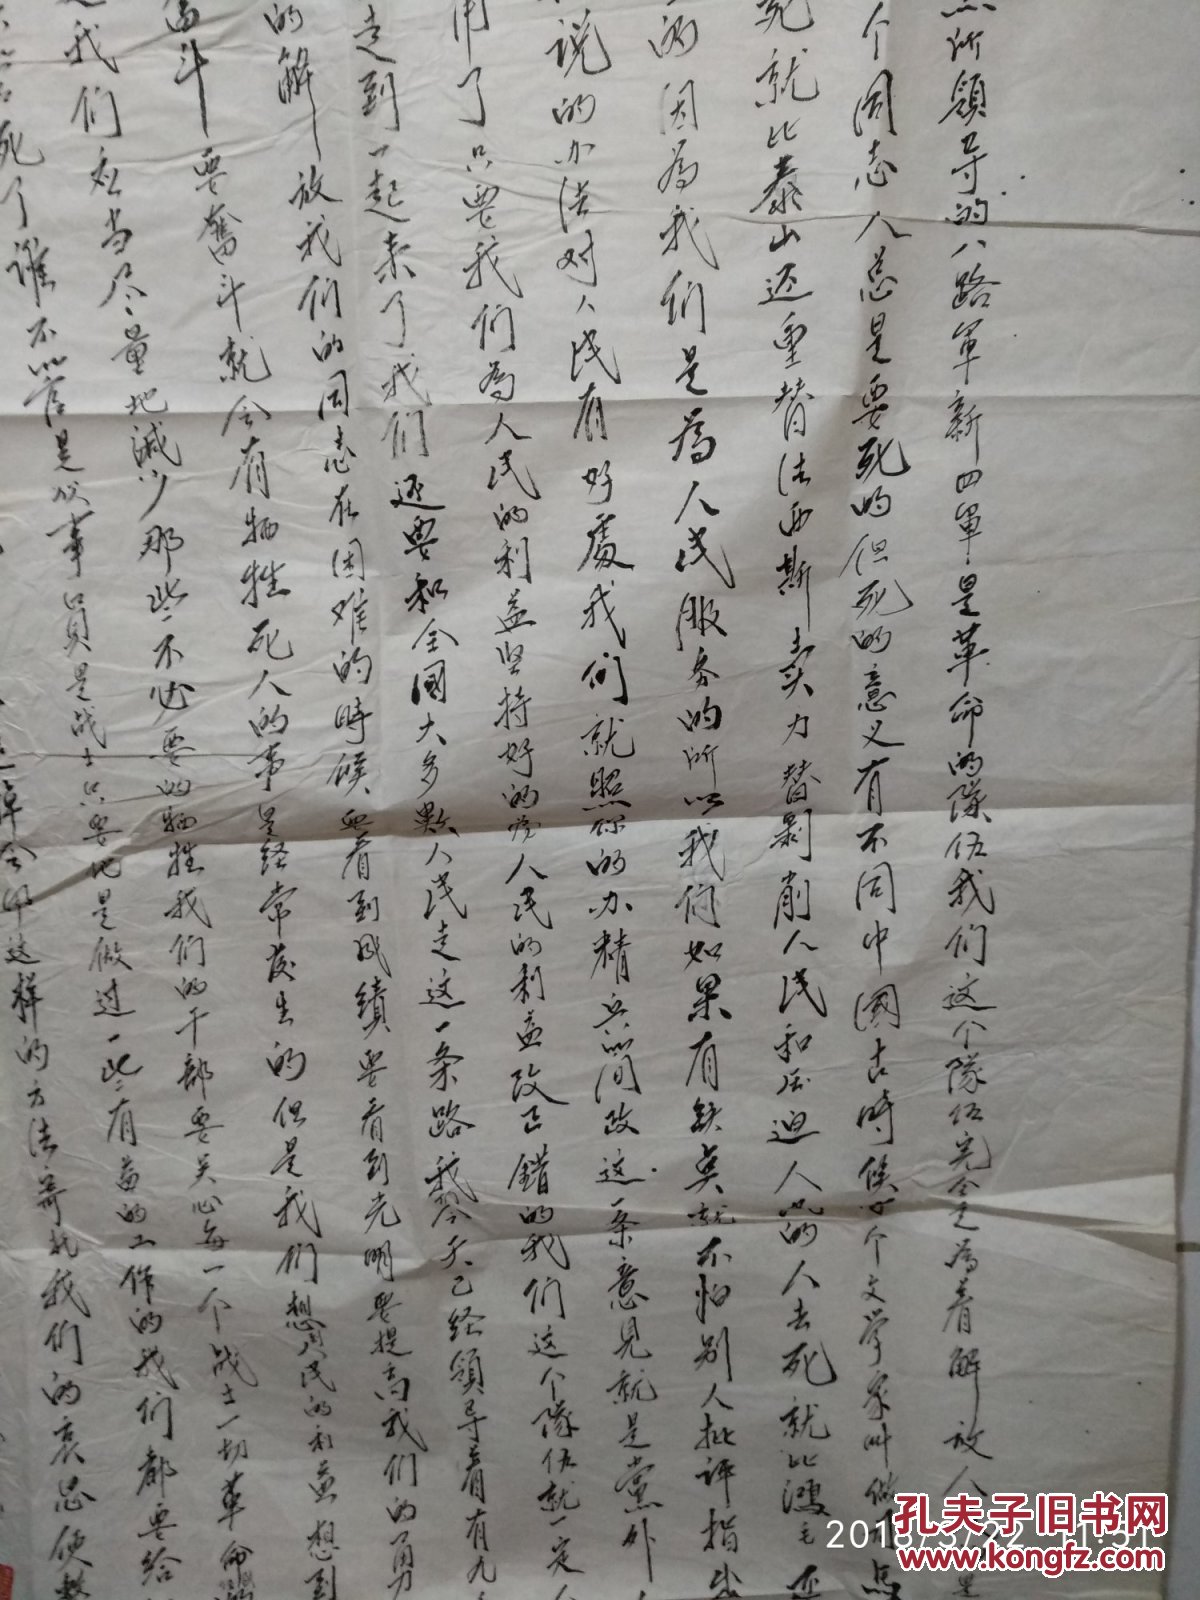 所領导的八路軍新四軍是革命的隊伍我们这个隊伍完全是为着解放人
个同志人总是要死的但死的意义有不同中國古時候有个文学家叫做司馬
死就比泰山还重替法西斯卖力替剥削人民和压迫人民的人去死就比鸿毛还
的因為我们是為人民服务的所以我们如果有缺点就不怕别人批评指出
说的办法对人民有好處我们就照你的办精兵简政这一条意見就是黨外
用了只要我们為人民的利益坚持好的為人民的利益改正错的我们这个隊伍就一定
走到一起来了我们还要和全國大多数人民走这一条路我们今天已经領导着有九
的解放我们的同志在困难的時候要看到成績要看到光明要提高我们的勇
奋斗要奮斗就会有牺牲死人的事是经常发生的但是我们想到人民的利益想到
我们应当尽量地減少那些不必要的牺牲我们的干部要关心每一个战士一切革命的
死了谁不管是炊事員是战士只要他是做过一些有益的工作的我们都要给
追悼会用这样的方法寄托我们的哀思使整
孔夫子旧书网
www.kongfz.com